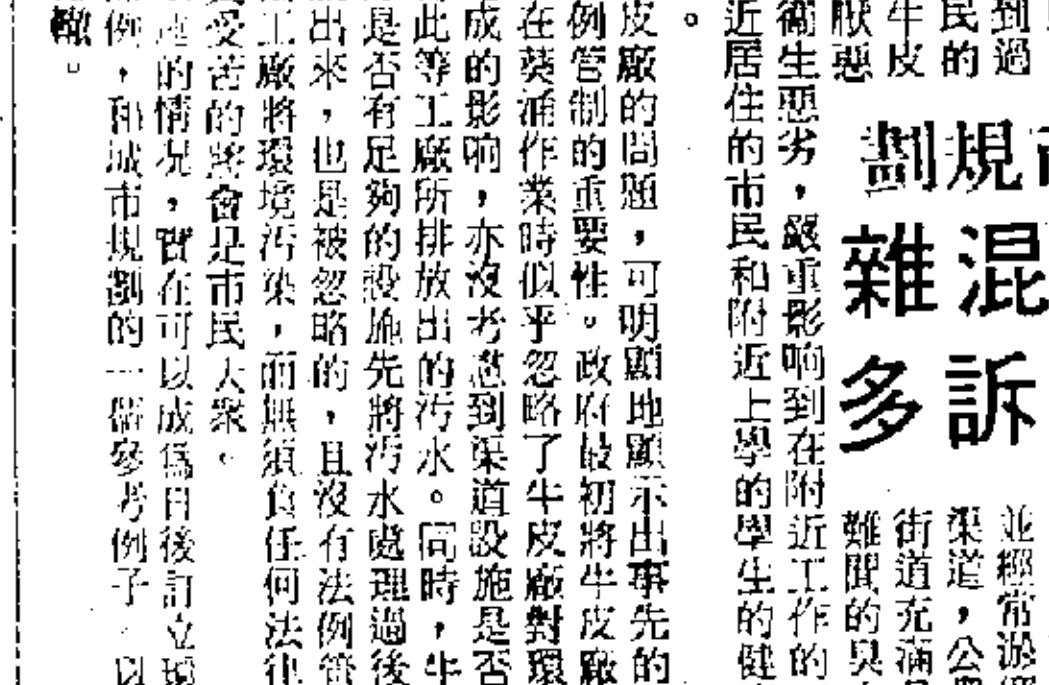 到過
民的
牛皮
厭惡
規劃
混雜
訴多
並經常淤
渠道，公
街道充滿
難聞的臭
衞生惡劣，嚴重影响到在附近工作的
近居住的市民和附近上學的學生的健
。
皮廠的問題，可明顯地顯示出事先的
例管制的重要性。政府最初將牛皮廠
在葵涌作業時似乎忽略了牛皮廠對環
成的影响，亦沒考慮到渠道設施是否
此等工廠所排放出的污水。同時，牛
是否有足夠的設施先將污水處理過後
出來，也是被忽略的，且沒有法例管
工廠將環境污染，而無須負任何法律
受苦的將會是市民大衆。
的情况，實在可以成爲日後訂立環
例，和城市規劃的一個參考例子，以
轍。